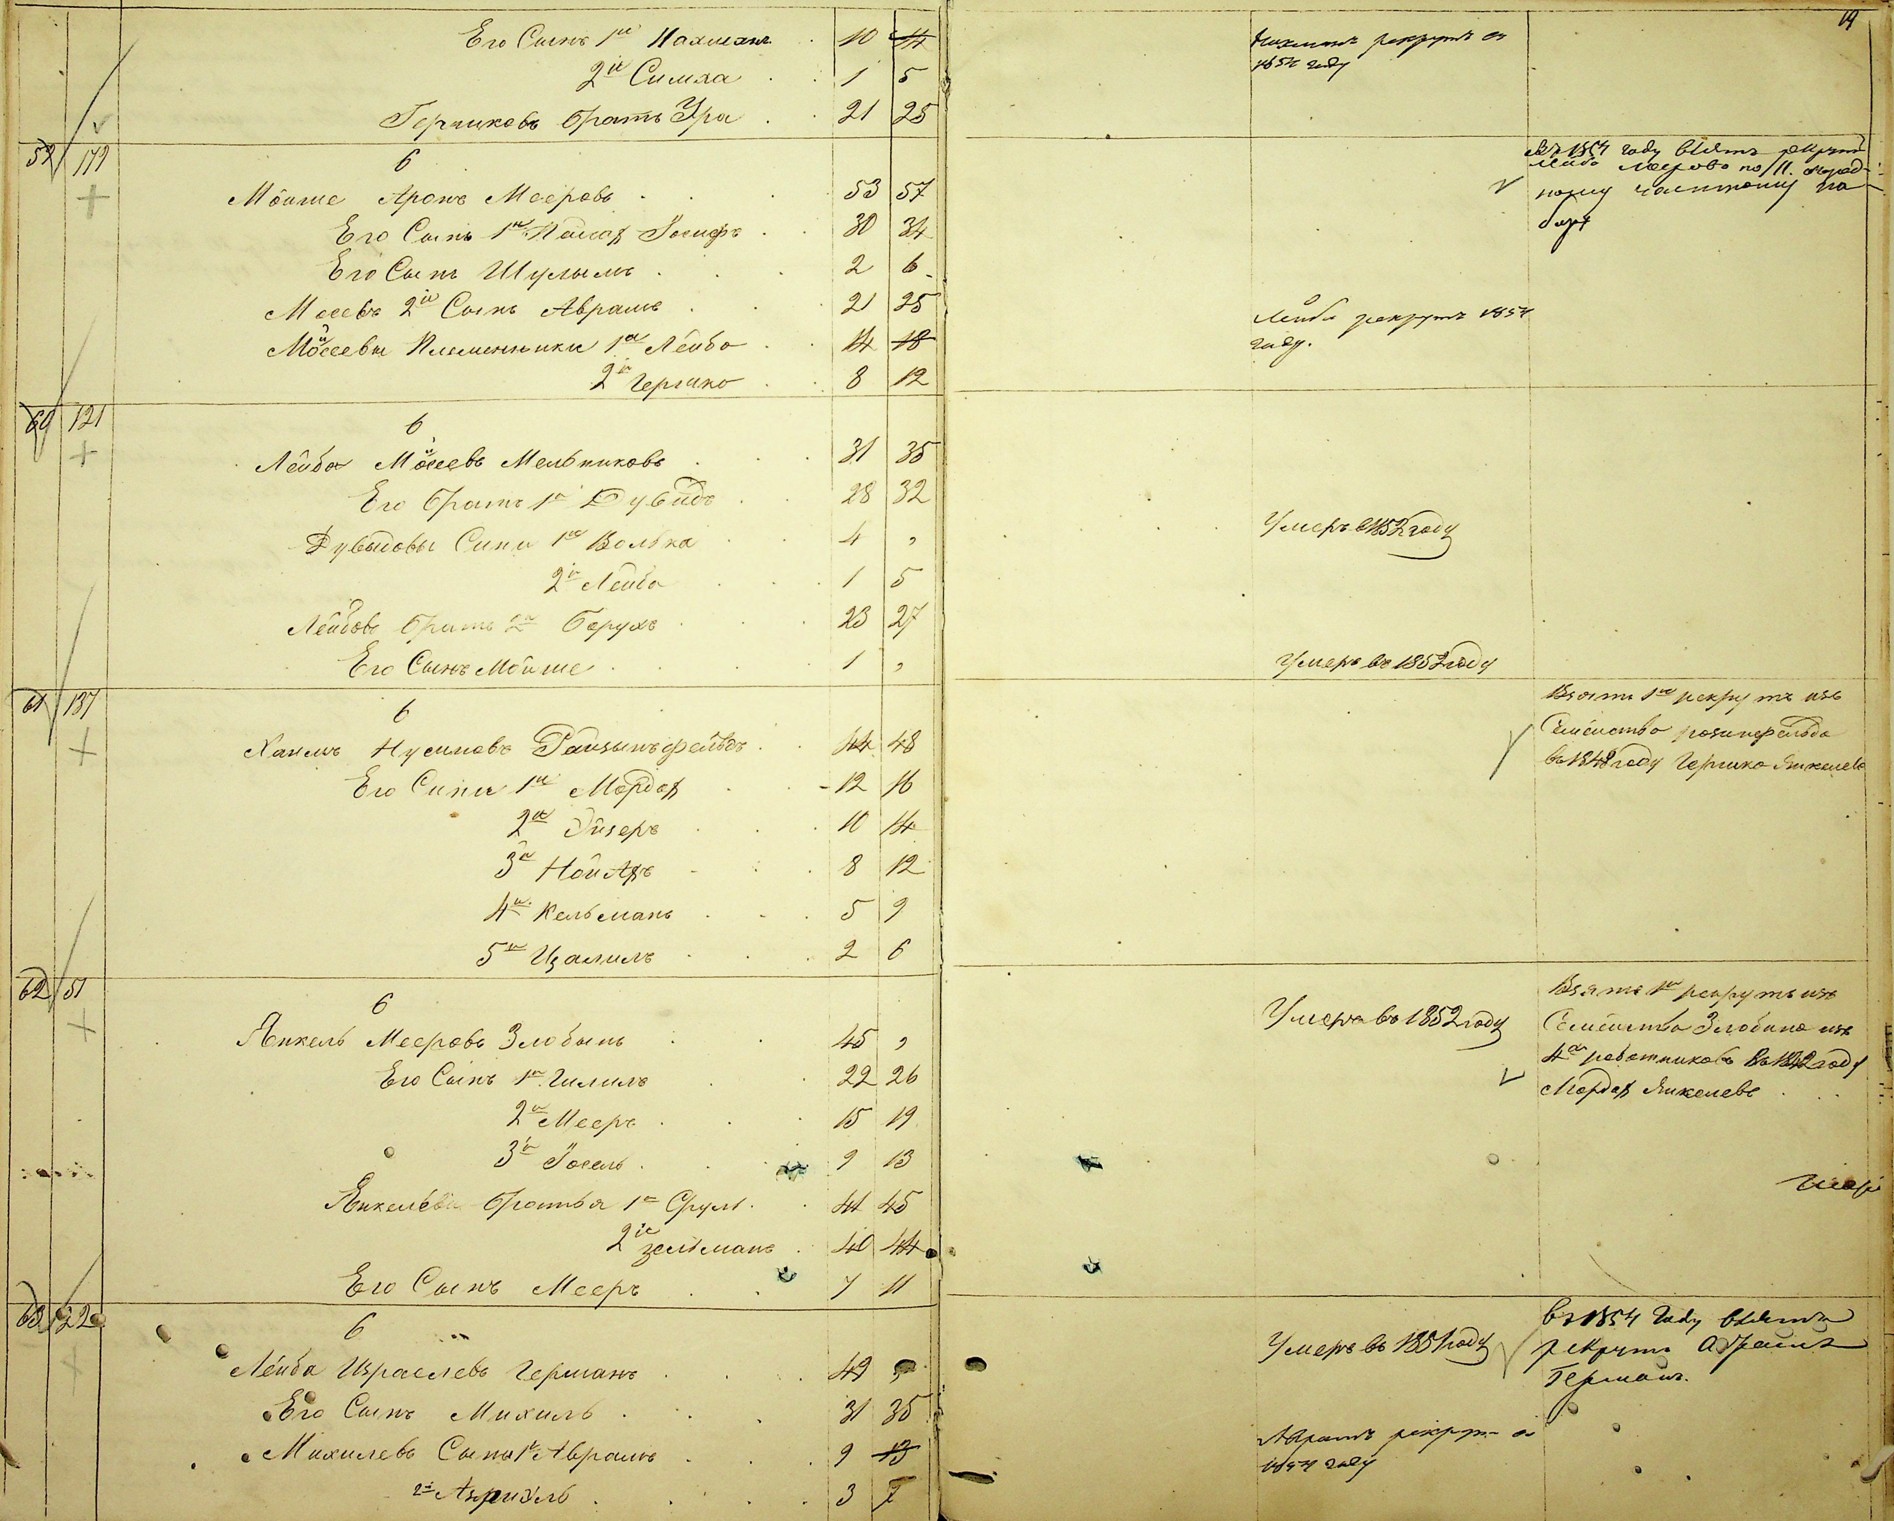 19
Его Сынъ 1й Нахманъ 10 14
Нахманъ рекрутъ въ
1854 году
2й Симха 1 5
Гершковъ братъ Ура 21 25
59 179
6
Мойше Аронъ Мееровъ 53 57
Въ 1854 году взятъ рекрут
Лейба Мееровъ по 11.
ному частному на
бору
Его Сынъ 1й Иосифъ 30 34
Его Сынъ Шулымъ 2 6
Мосевъ 2й Сынъ Аврамъ 21 25
Мойсеевы Племенники 1й Лейба 14 18
Лейба рекрутъ 1854
году.
2й Гершко 8 12
60 121
6
Лейба Мойсеевъ Мельниковъ 31 35
Его братъ 1й Дувидъ 28 32
Дувидовы Сыны 1й Волька 4 „
Умеръ в 1852 году
2й Лейба 1 5
Лейбовъ братъ 2й Борухъ 23 27
Его Сынъ Мойше 1 „
Умеръ въ 1852 году
61 137
6
Хаимъ Нусимовъ Райзынъфельдъ 44 48
Взятъ 1й рекрутъ изъ
Семейства розинфельда
въ 1848 году Гершко Янкелевъ
Его Сыны 1й Мордох 12 16
2й Эйзеръ 10 14
3й 8 12
4й Кельманъ 5 9
5й Цалилъ 2 6
62 51
6
Янкель Мееровъ Злобинъ 45 „
Умеръ въ 1852 году
Взятъ 1й рекрутъ изъ
Семейства Злобина изъ
4й работниковъ въ 1842 году
Мордох Янкелевъ
Его Сынъ 1й Гилилъ 22 26
2й Мееръ 15 19
3й Йосель 9 13
Янкелевы братья 1й Срулъ 41 45
2й Зельманъ 40 44
Его Сынъ Мееръ 7 11
63 122
6
Лейба Израелевъ Германъ 49
Умеръ въ 1851 году
въ 1854 году взятъ
рекрутъ Абрамъ
Германъ.
Его Сынъ Михиль 31 35
Михилевъ Сынъ 1й Аврамъ 9 13
Аврамъ рекрутъ в
1854 году
2й Азриэль 3 7